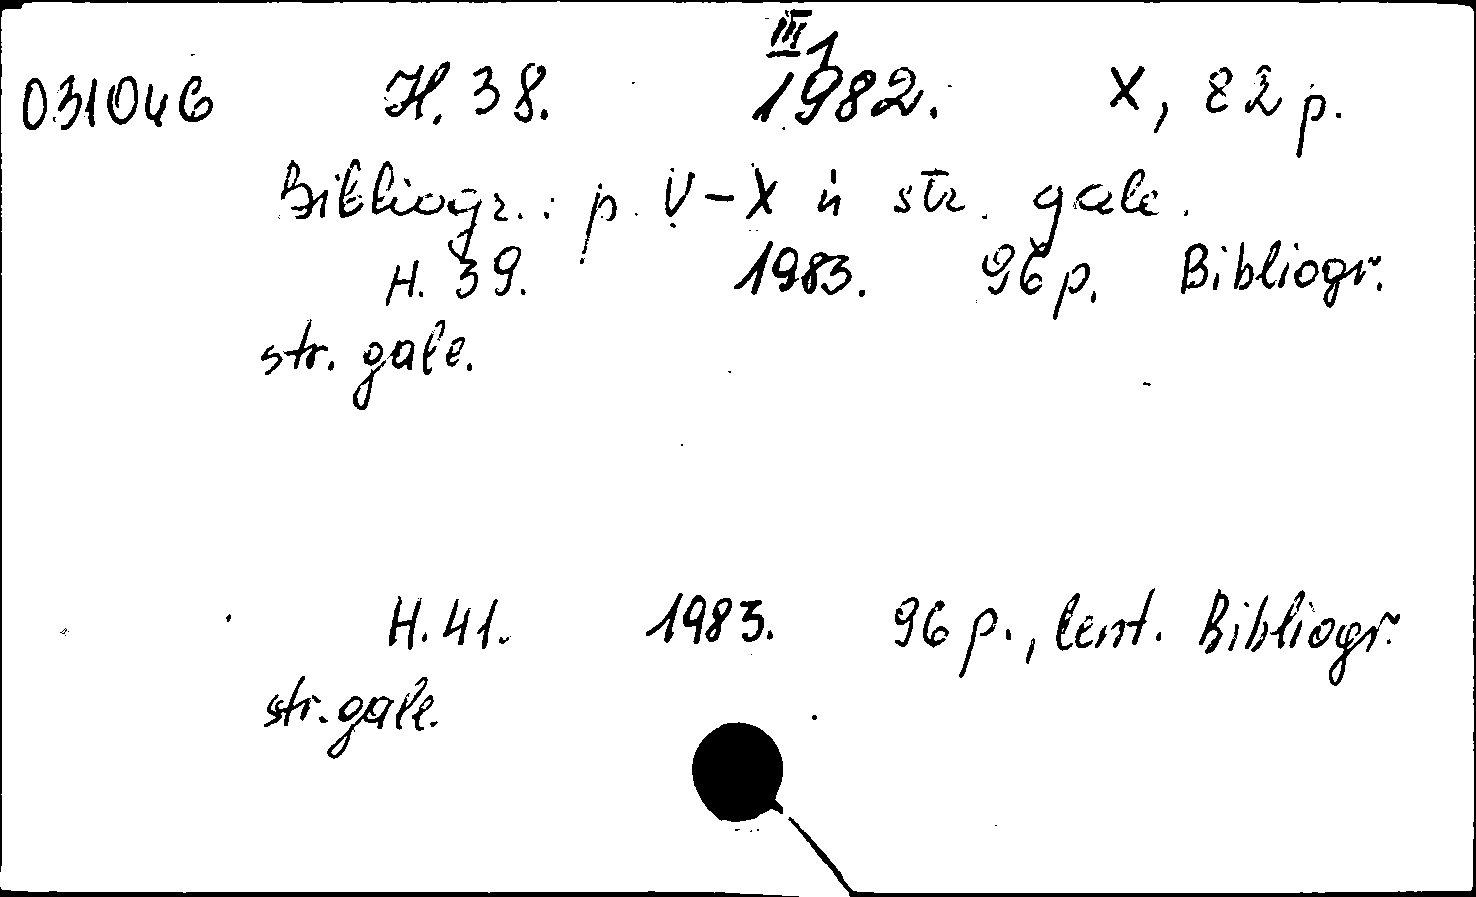 III 1
031046 H. 38. 1982. X, 82 p.
Bibliogr.: p. V-X ir str. gale.
H. 39. 1983. 96 p. Bibliogr.
str. gale.
H. 41. 1983. 96 p., lent. Bibliogr.
str. gale.